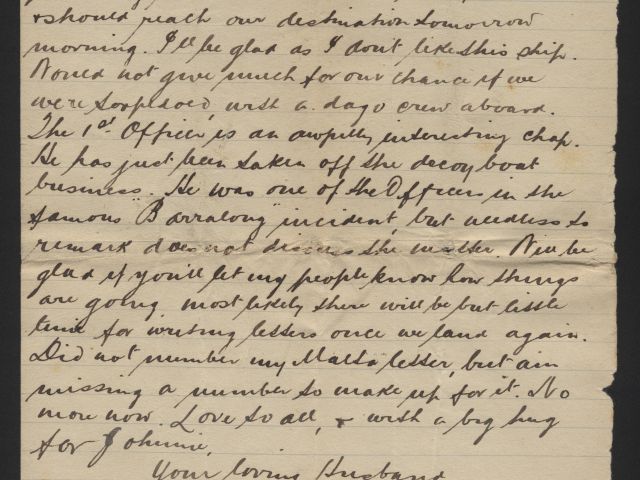 & should reach our destination tomorrow
morning. I'll be glad as I don't like this ship.
Would not give much for our chance if we
were torpedoed, with a dago crew aboard.
The 1st Officer, is an awfully interesting chap.
He has just been taken off the decoy boat
business. He was one of the Officers in the
famous "Barralong" incident, but needless to
remark does not discuss the matter. Will be
glad if you'll let my people know how things
are going, most likely there will be but little
time for writing letters once we land again.
Did not number my Malta letter, but am
missing a number to make up for it. No
more now. Love to all, & with a big hug
for Johnnie,
Your loving Husband